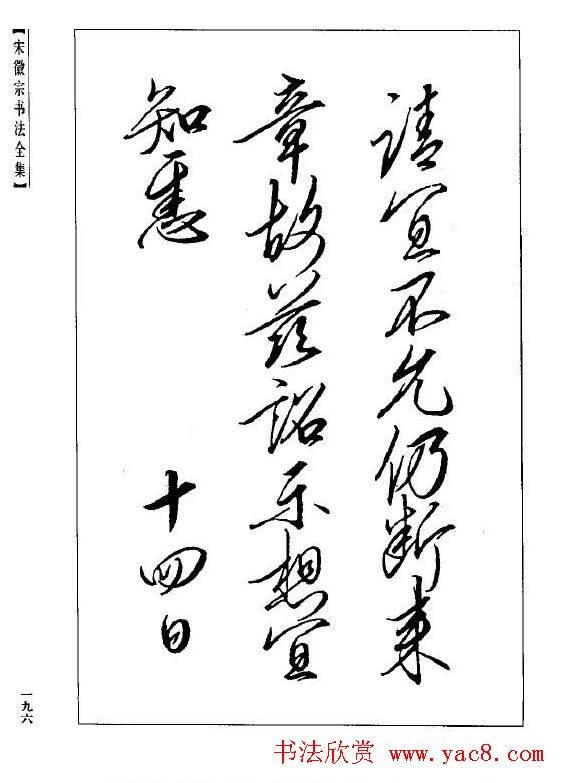 【宋徽宗书法全集】
请宜不允仍断来
章故兹诏示想宜
知悉 十四日
一九六
书法欣赏 www.yac8.com